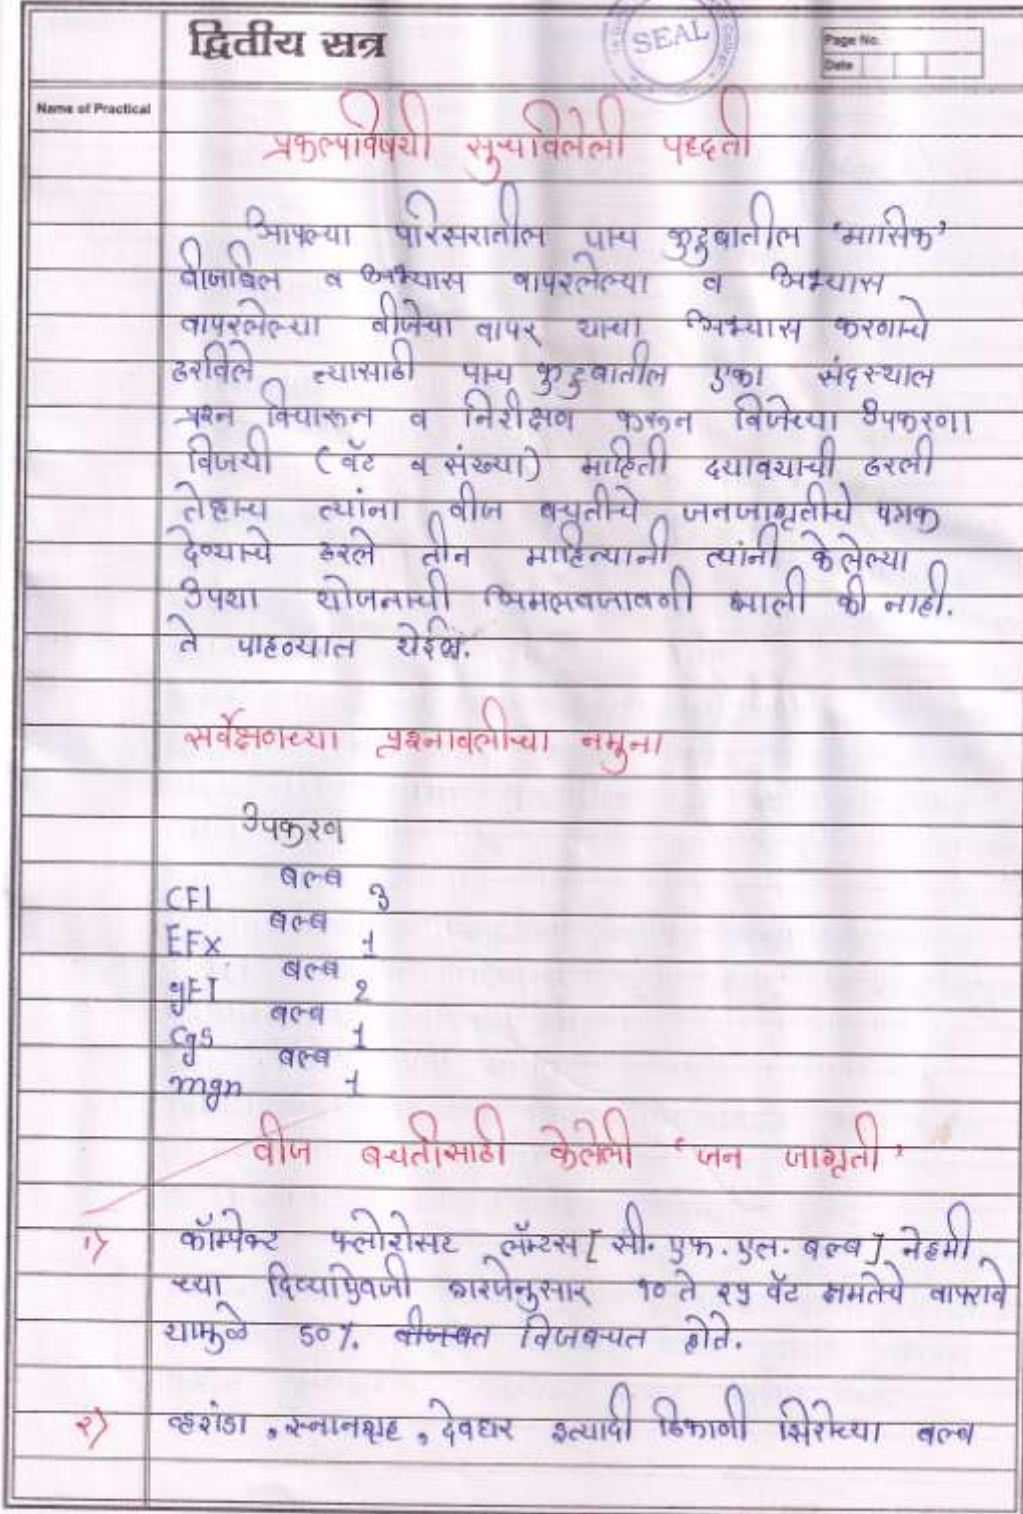 द्वितीय सत्र
SEAL
Page No.
Date
Name of Practical
प्रकल्पाविषयी सुचविलेली पध्दती
आपल्या परिसरातील पाच कुटुबातील 'मासिक'
वीजबिल व अभ्यास वापरलेल्या व अभ्यास
वापरलेल्या वीजेचा वापर याचा अभ्यास करणाचे
ठरविले त्यासाठी पाच कुटुबातील एका संदस्याल
प्रश्न विचारून व निरीक्षण करून विजेच्या उपकरणा
विजयी (वॅट व संख्या) माहिती दयावयाची ठरली
तेव्हाच त्यांना वीज बचतीचे जनजागृतीचे पत्रक
देण्याचे ठरले तीन माहिन्यानी त्यांनी केलेल्या
उपया योजनाची अमलबजावणी झाली की नाही.
ते पाहण्यात येईल.
सर्वेक्षणच्या प्रश्नावलीचा नमुना
उपकरण
CFI बल्ब 3
EFX बल्ब 1
gFI बल्ब 2
Cgs बल्ब 1
mgn बल्ब 1
वीज बचतीसाठी केलेली 'जन जागृती'
१) कॉम्पेक्ट फ्लोरोसट लॅम्टस [सी. एफ. एल. बल्ब] नेहमी
च्या दिव्याऐवजी गरजेनुसार १० ते २५ वॅट क्षमतेचे वापरावे
यामुळे 50%. विजबचत होते.
२) व्हरांडा, स्नानगृह, देवघर इत्यादी ठिकाणी झिरोच्या बल्ब